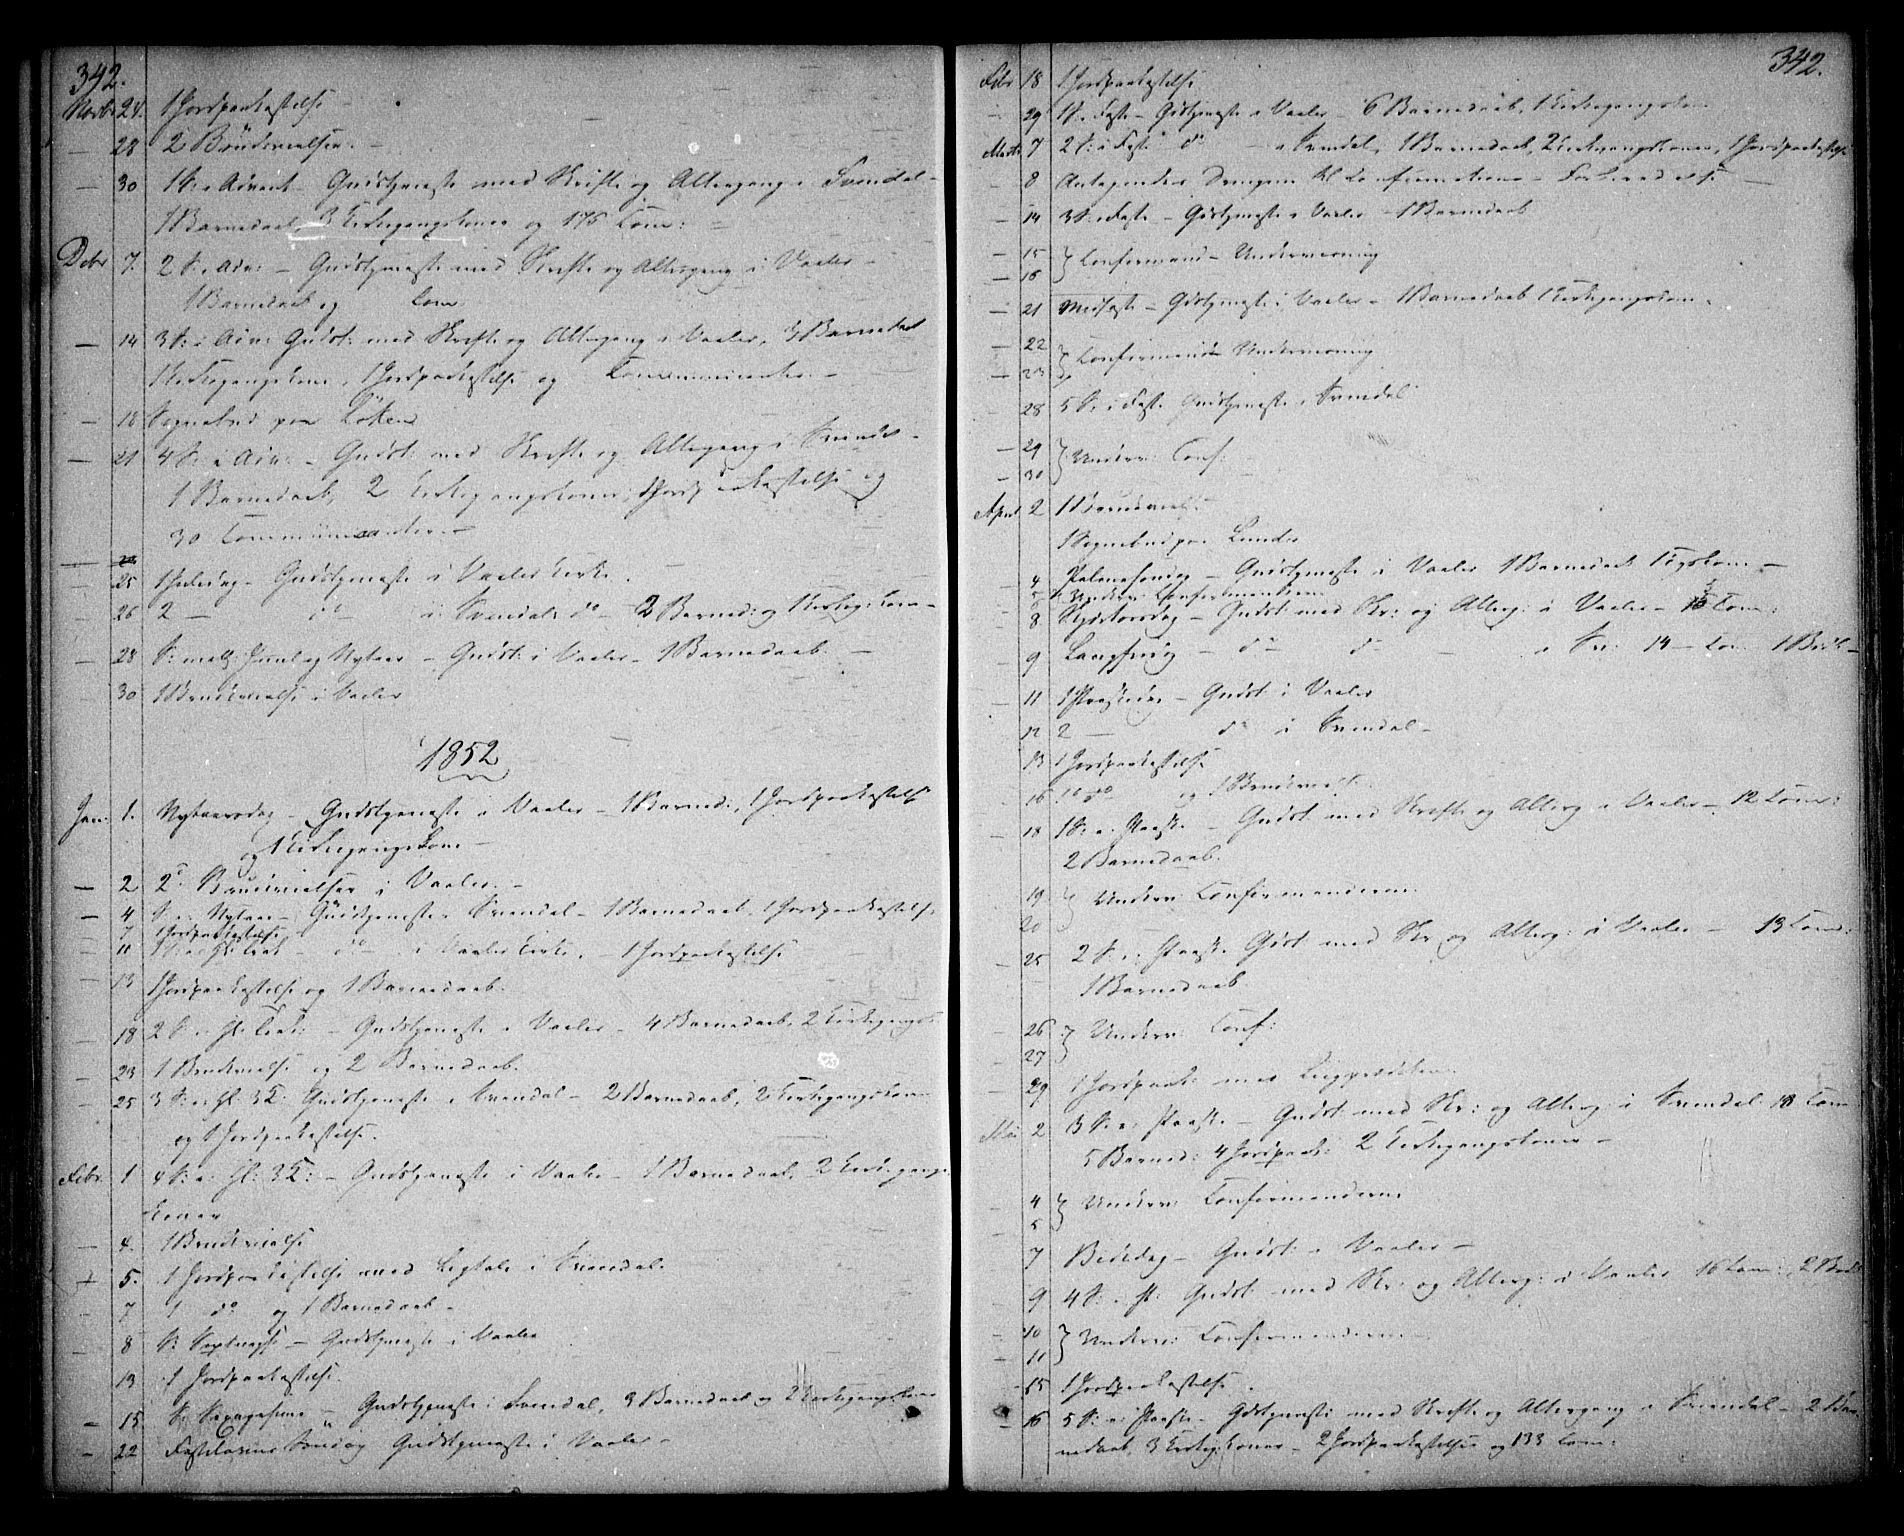 342.
Novbr 24. 1 Jordpaakastelse
— 28 2 Brudevielser. —
— 30 1 S. i Advent — Gudstjeneste med Skrifte og Altergang i Svendal —
1 Barnedaab, 3 Kirkegangskoner og 176 Com: —
Debr 7. 2 S. i Adv: — Gudstjeneste med Skrifte og Altergang i Vaaler —
1 Barnedaab og Com.
— 14 3 S: i Adv: Gudst: med Skrifte og Altergang i Vaaler, 3 Barnedaab
1 Kirkegangskone, 1 Jordpaakastelse og Communicanter. —
— 18 Sognebud paa Löken
— 21 4 S: i Adv: — Gudst: med Skrifte og Altergang i Svendal —
1 Barnedaab, 2 Kirkegangskoner, 1 Jordpaakastelse og
30 Communicanter. —
25 1 Juledag — Gudstjeneste i Vaaler Kirke.
— 26 2 — do i Svendals do — 2 Barned: og 1 Kirkeg:kone —
— 28 S: mell: Juul og Nytaar — Gudst: i Vaaler — 1 Barnedaab —
30 1 Brudevielse i Vaaler
1852
Jan: 1. Nytaarsdag — Gudstjeneste i Vaaler — 1 Barned:, 1 Jordpaakastelse
og 1 Kirkegangskone —
— 2 2 Brudevielser i Vaaler. —
— 4 S. e. Nytaar — Gudstjeneste i Svendal — 1 Barnedaab, 1 Jordpaakastelse
7 1 Jordpaakastelse
— 11 1 S: e. H: 3 K: — do — i Vaaler Kirke. — 1 Jordpaakastelse
— 13 1 Jordpaakastelse og 1 Barnedaab.
— 18 2 S. e. H: 3 K: — Gudstjeneste i Vaaler — 4 Barnedaab, 2 Kirkegangsk:
— 23 1 Brudevielse og 2 Barnedaab.
— 25 3 S. e. Hl: 3 K: Gudstjeneste i Svendal — 2 Barnedaab, 2 Kirkegangskoner
og 1 Jordpaakastelse.
Febr. 1 4 S: e. Hl: 3 K: — Gudstjeneste i Vaaler — 1 Barnedaab, 2 Kirkegangs
koner
— 4. 1 Brudevielse
— 5. 1 Jordpaakastelse med Ligtale i Svendal.
— 7 1 do og 1 Barnedaab —
— 8 S: Septuages — Gudstjeneste i Vaaler
13 1 Jordpaakastelse.
— 15. S: Sexagesima — Gudstjeneste i Svendal, 3 Barnedaab og 2 Kirkegangskoner
— 22 Fastelavns Søndag Gudstjeneste i Vaaler —
342.
Febr 18 1 Jordpaakastelse
— 29 1 S. i Faste — Gudstjeneste i Vaaler — 6 Barnedaab, 1 Kirkegangskone
Marts 7 2 S: i Faste do — i Svendal, 1 Barnedaab, 2 Kirkegangskoner, 1 Jordpaakastelse
— 8 Antagendes Drengene til Confirmations-Forberedelse —
— 14 3 S. i Faste — Gudstjeneste i Vaaler — 1 Barnedaab
— 15
— 16 } Confirmand-Underviisning
— 21 Midfaste — Gudstjeneste i Vaaler — 1 Barnedaab 1 Kirkegangskone.
— 22
— 23 } Confirmand-Underviisning
— 28 5 S. i Faste Gudstjeneste i Svendal
— 29
— 30 } Underv: Conf:
April 2 1 Brudeviels:
1 Sognebud paa Lunder
4 Palmesøndag — Gudstjeneste i Vaaler 1 Barnedaab 1 Kgskone —
5 Underv: Confirmanderne
— 8 Skjærtorsdag — Gudst: med Skr: og Alterg: i Vaaler — Com:
— 9 Langfredag — do do — i Sv: 14 Com 1 Bdb —
— 11 1 Paaskedag — Gudst: i Vaaler
— 12 2 — do i Svendal —
13 1 Jordpaakastelse
— 16 1 do og 1 Brudeviels:
— 18 1 S: e. Paaske — Gudst: med Skrifte og Alterg i Vaaler — 12 Com:
2 Barnedaab.
19
20 } Underv: Confirmanderne.
— 25 2 S. e. Paaske Gdst: med Skr og Alterg: i Vaaler — 13 Com:
1 Barnedaab.
— 26
27 } Underv: Conf:
— 29 1 Jordpaak: med
Mai 2 3 S. e. Paaske — Gudst: med Skr: og Alterg: i Svendal 18 Com
5 Barned: 4 Jordpaak: 2 Kirkegangskoner —
4
5 } Underv: Confirmanderne
7 Bededag — Gudst: i Vaaler —
— 9 4 S. e. P: Gudst: med Skr: og Alterg: i Vaaler 16 Com:, 2 Bdb
— 10
— 11 } Underv: Confirmanderne —
— 15 1 Jordpaakastelse.
— 16 5 S: e. Paaske — Gdstjeneste med Skrifte og Altergang i Svendal — 2 Bar
nedaab, 3 Kirkeg:koner — 2 Jordpaakastelser og 133 Com: